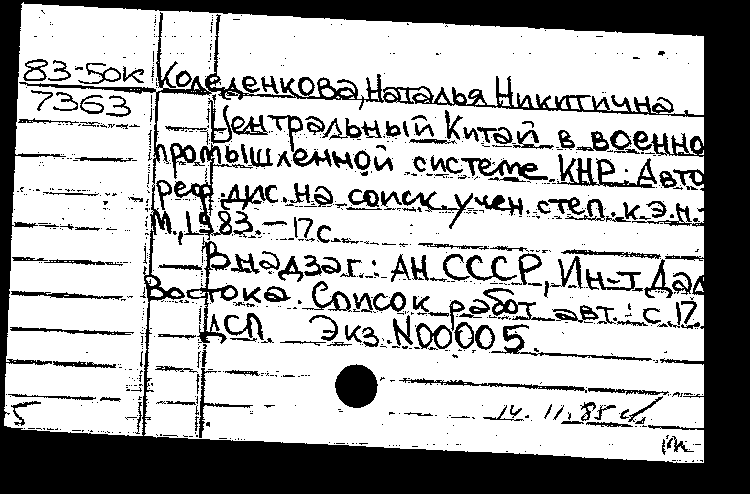 83-50к Коледенкова, Наталья Никитична.
7363
Центральный Китай в военно
промышленной системе КНР: Авто
реф. дис. на соиск. учен. степ. к.э.н.-
М., 1983. – 17 с.
В надзаг.: АН СССР, Ин-т Дал
Востока. Список работ авт.: с. 17.
ДСП. Экз. N00005.
14. 11. 85
5